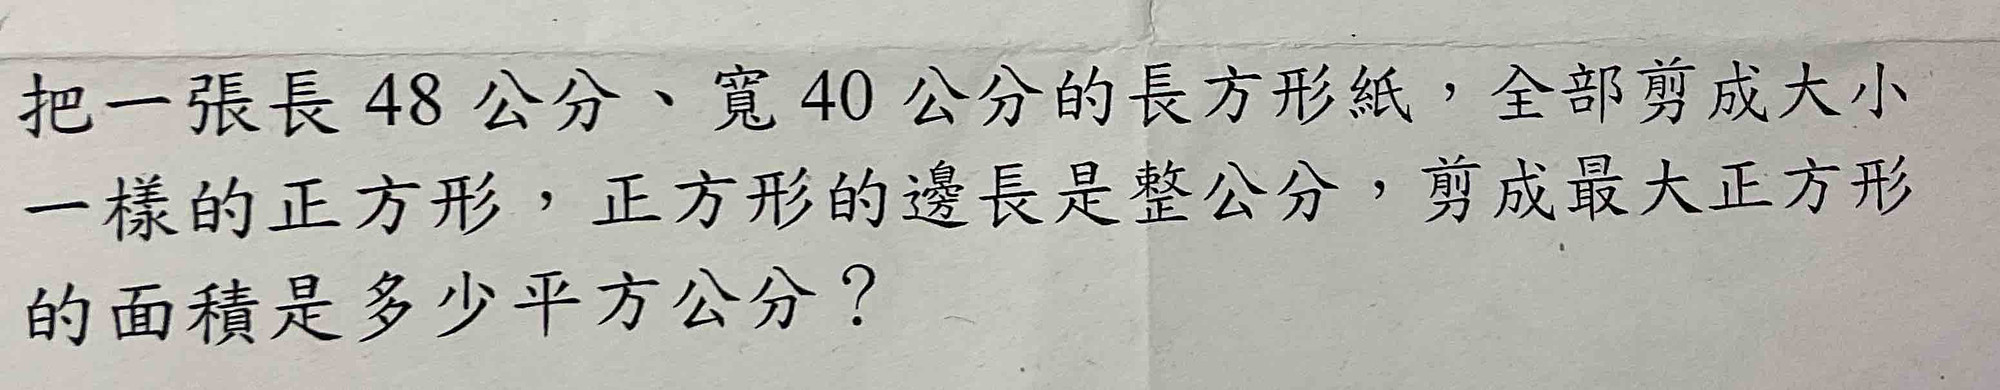 把一張長 48 公分、寬 40 公分的長方形紙，全部剪成大小
一樣的正方形，正方形的邊長是整公分，剪成最大正方形
的面積是多少平方公分？